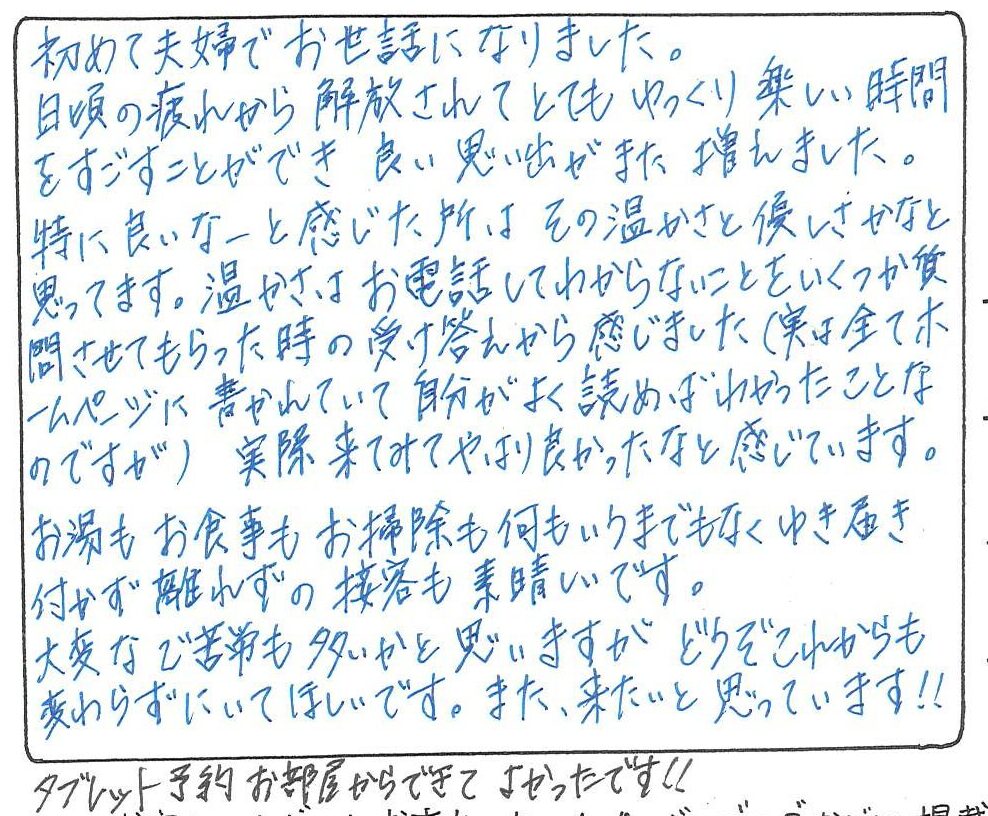 初めて夫婦でお世話になりました。
日頃の疲れから解放されてとてもゆっくり楽しい時間
をすごすことができ 良い思い出がまた増えました。
特に良いなーと感じた所は その温かさと優しさかなと
思ってます。温かさはお電話してわからないことをいくつか質
問させてもらった時の受け答えから感じました(実は全てホ
ームページに書かれていて自分がよく読めばわかったことな
のですが) 実際来てみてやはり良かったなと感じています。
お湯もお食事もお掃除も何もいうまでもなくゆき届き
付かず離れずの接客も素晴しいです。
大変なご苦労も多いかと思いますが どうぞこれからも
変わらずにいてほしいです。また、来たいと思っています!!
タブレット予約お部屋からできてよかったです!!